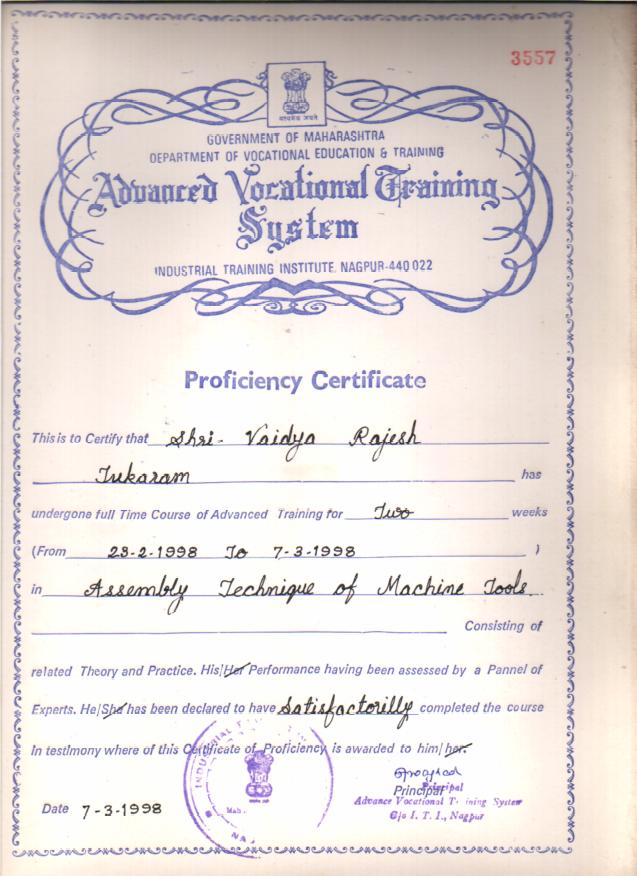 3557
सत्यमेव जयते
GOVERNMENT OF MAHARASHTRA
DEPARTMENT OF VOCATIONAL EDUCATION & TRAINING
Advanced Vocational Training
System
INDUSTRIAL TRAINING INSTITUTE, NAGPUR-440 022
Proficiency Certificate
This is to Certify that Shri- Vaidya Rajesh
Tukaram has
undergone full Time Course of Advanced Training for Two weeks
(From 23-2-1998 To 7-3-1998 )
in Assembly Technique of Machine Tools
Consisting of
related Theory and Practice. His/Her Performance having been assessed by a Pannel of
Experts. He/She has been declared to have Satisfactorilly completed the course
In testimony where of this Certificate of Proficiency is awarded to him/her.
INDUSTRIAL
Principal
Principal
Advance Vocational Training System
C/o I. T. I., Nagpur
Date 7-3-1998